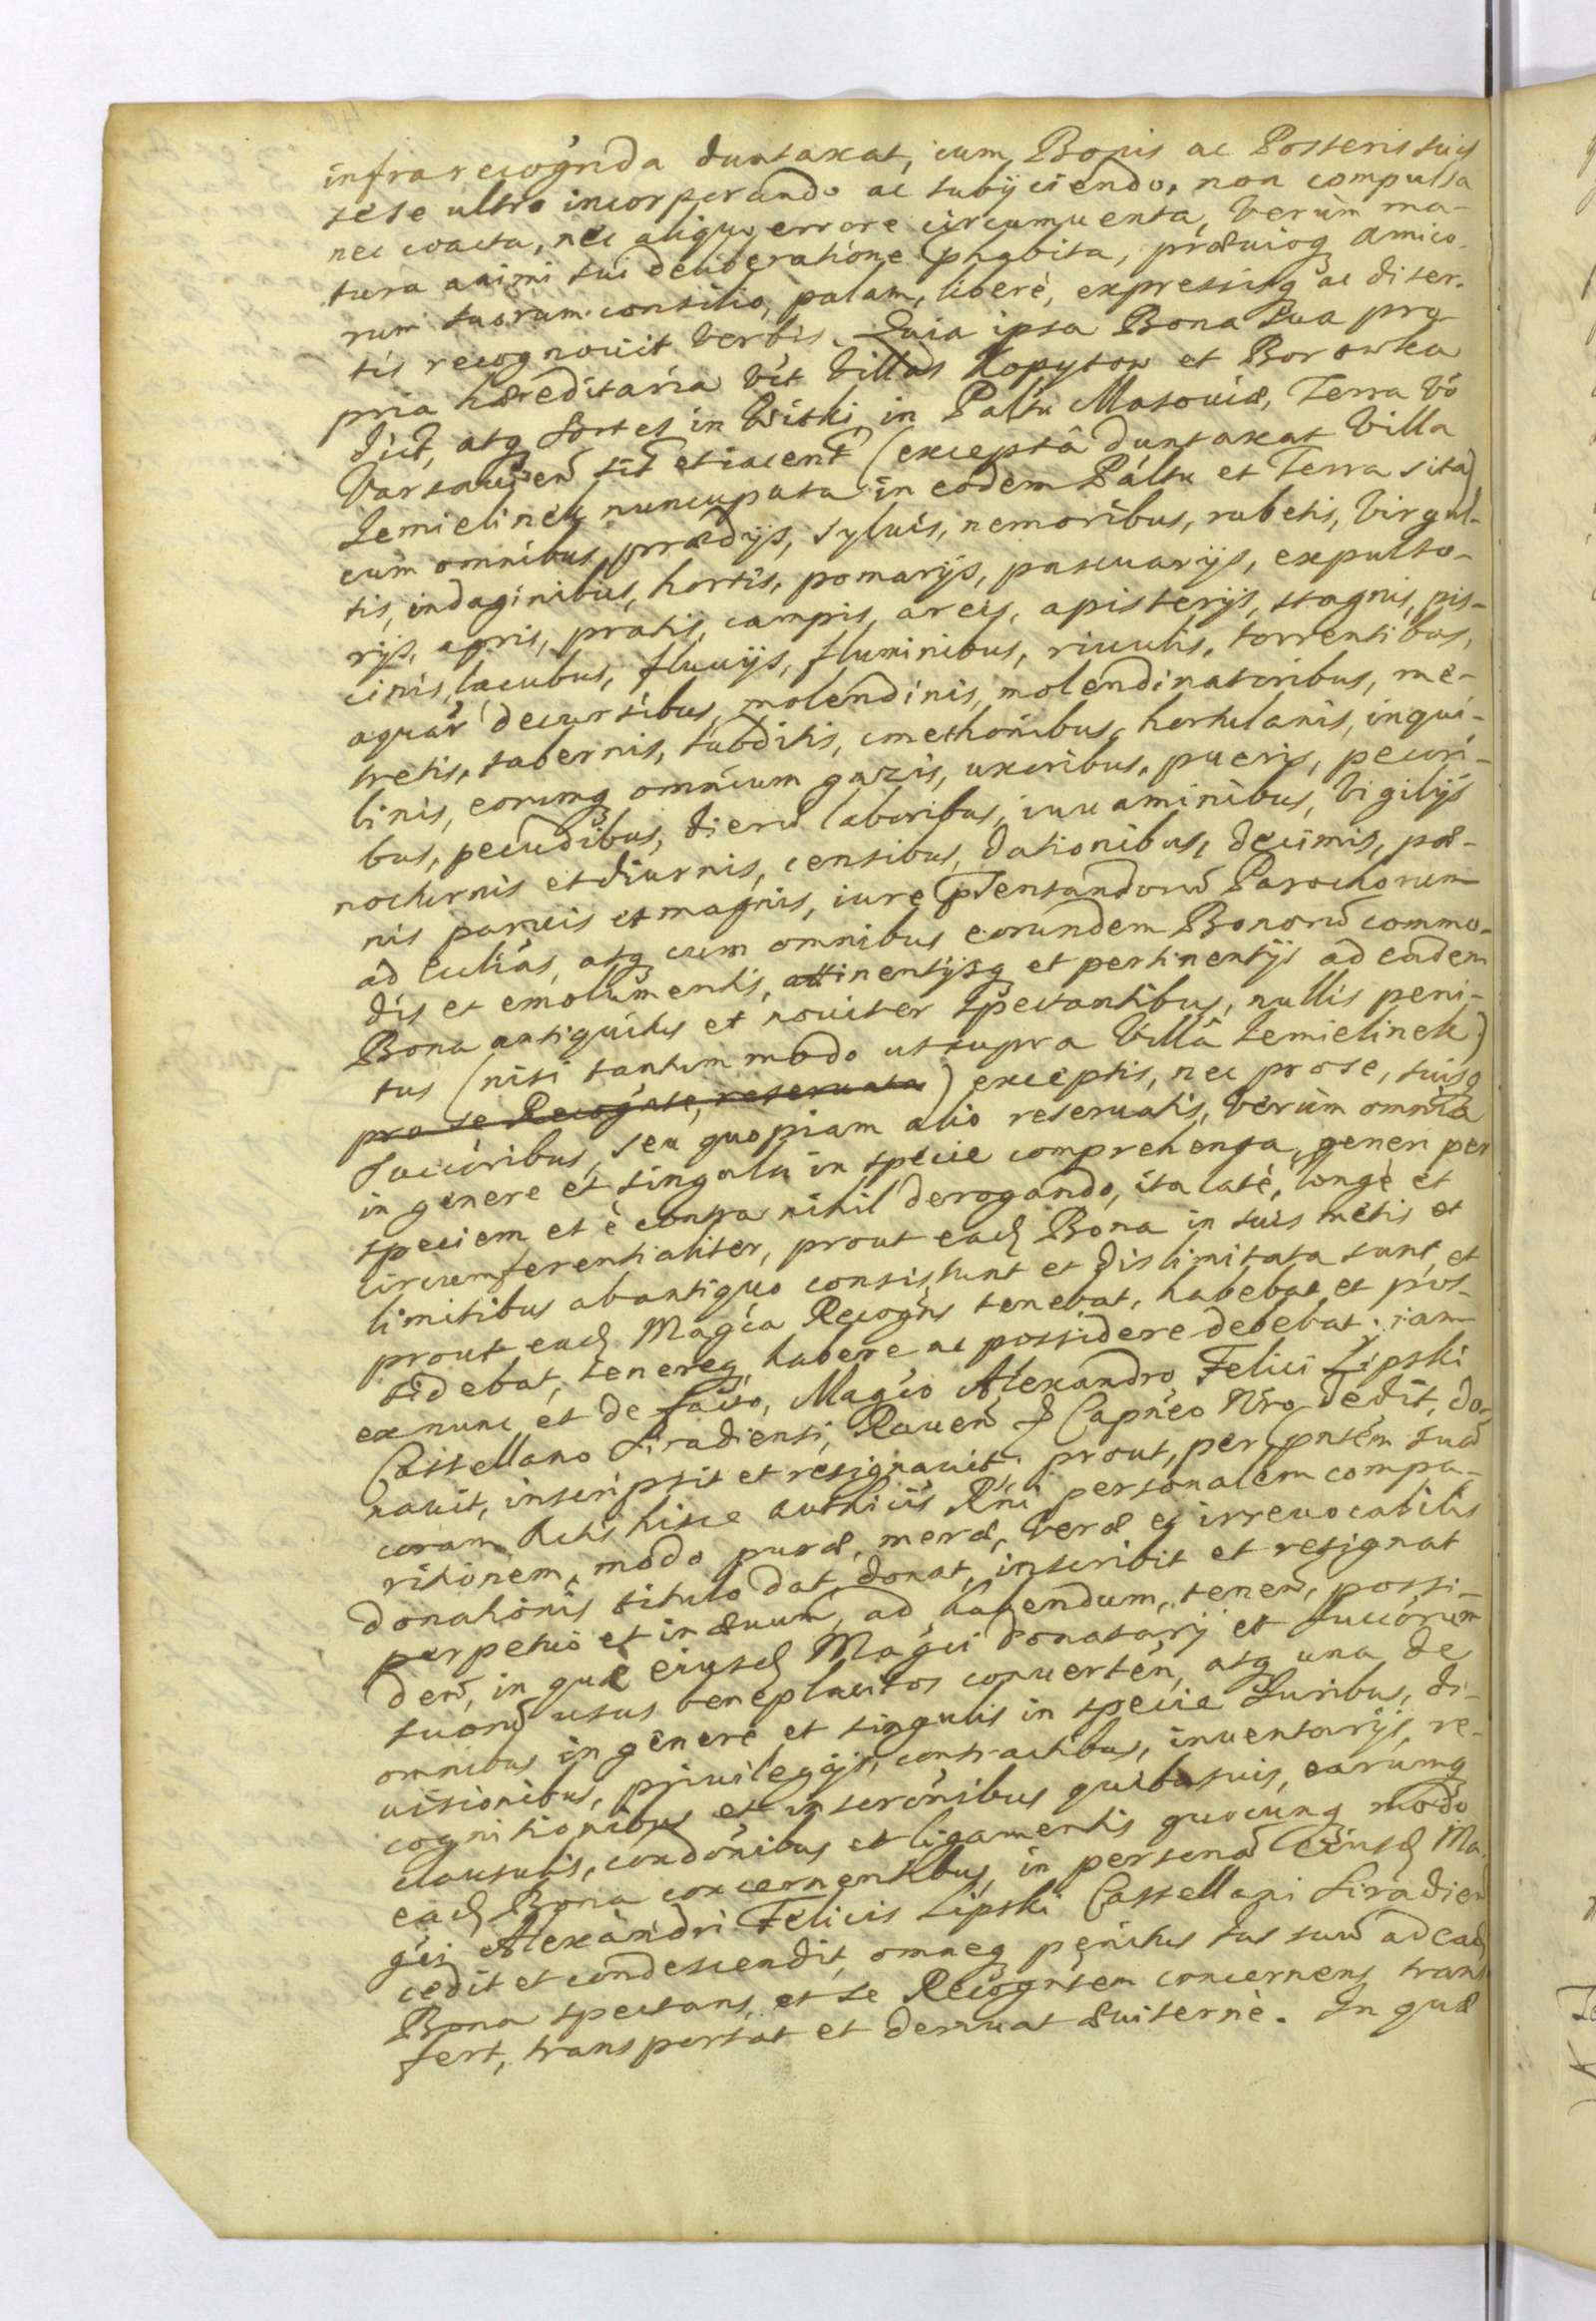 infrarecognda duntaxat, cum Bonis ac Posteris suis
sese ultro incorporando ac subijciendo, non compulsa
nec coacta, nec aliquo errore circumuenta, verùm ma-
tura animi sui deliberatione phabita, præuioq amico-
rum suorum consilio, palam, liberè, expressisq ac diser-
tis recognouit verbis. Quia ipsa Bona sua pro-
pria hæreditaria vìt Villas Kopytow et Borowka
dict, atq Sortes in Wiski, in Paltu Masouiæ, Terra vò
Varsauien sit et iacent (exceptâ duntaxat Villa
Zemielinek nuncupata in eodem Paltu et Terra sita)
cum omnibus prædijs, syluis, nemoribus, rubetis, virgul-
tis, indaginibus, hortis, pomarijs, pascuarijs, expulso-
rijs, agris, pratis, campis, areis, apisterijs, stagnis, pis-
cinis, lacubus, fluuijs, fluminibus, riuulis, torrentibus,
aquar decursibus, molendinis, molendinatoribus, me-
tretis, tabernis, subditis, cmethonibus, hortulanis, inqui-
linis, eorumq omnium gazis, uxoribus, pueris, pecori-
bus, pecudibus, dierũ laboribus, iuuaminibus, vigilijs
nocturnis et diurnis, censibus, dationibus, decimis, pœ-
nis paruis et magnis, iure pñtentandorũ Parochorum
ad Eccliàs, atq cum omnibus eorundem Bonorũ commo-
dis et emolumentis, attinentijsq et pertinentijs ad eadem
Bona antiquitus et nouiter spectantibus, nullis peni-
tus (nisi tantummodo ut supra Villâ Zemielinek)
pro se Recognte, reseruata) exceptis, nec pro se, suisq
Succoribus, seu quopiam alio reseruatis, verùm omnia
in genere et singula in specie comprehensa, generi per
speciem et è contra nihil derogando, ita latè, longè et
circumferentialiter, prout ead Bona in suis metis et
limitibus ab antiquo consistunt et dislimitata sunt, et
prout ead Magca Recogns tenebat, habebat et pos-
sidebat, tenereq, habere ac possidere debebat; iam
ex nunc et de facto, Magco Alexandro Felici Lipski
Castellano Siradiensi, Rauen & Capneo Nro dedit, do-
nauit, inscripsit et resignauit; prout, per pntem suã
coram Actis hisce authicis Rni personalem compa-
ritionem, modo puræ, meræ, veræ et irreuocabilis
donationis titulo dat, donat, inscribit et resignat
perpetuò et in æuum, ad habendum, tenen, possi-
den, in quæ eiusd Magci donatarij et Succorum
suorũ usus beneplacitos conuerten, atq una de
omnibus in genere et singulis in specie Iuribus, di-
uisionibus, priuilegijs, contractibus, inuentarijs, re-
cognitionibus et inscronibus quibusuis, earumq
clausulis, condonibus et ligamentis quocunq modo
ead Bona concernentibus, in personã Eiusd Ma-
gci Alexandri Felicis Lipski Castellani Siradien
cedit et condescendit, omneq penitus Ius suũ ad ead
Bona spectans, et se Recogntem concernens trans
fert, transportat et deriuat æuiternè. In quæ